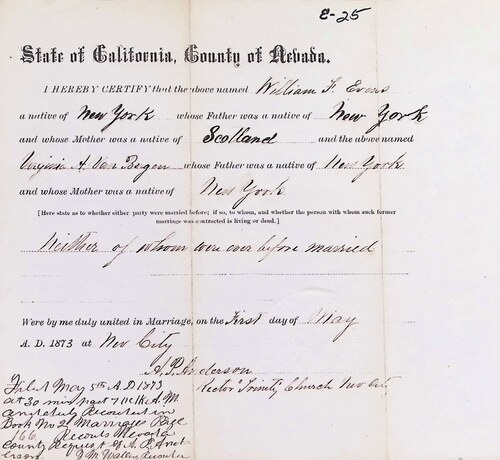 E-25
State of California, County of Nevada.
I HEREBY CERTIFY that the above named William F. Evens
a native of New York whose Father was a native of New York
and whose Mother was a native of Scolland and the above named
Virginia A. Van Bergen whose Father was a native of New York
and whose Mother was a native of New York
[Here state as to whether either party were married before; if so, to whom, and whether the person with whom such former
marriage was contracted is living or dead.]
Neither of whom were ever before married
Were by me duly united in Marriage, on the First day of May
A. D. 1873 at Nev City
A. P. Anderson
Rector Trinity Church Nev City
Filed May 5th A.D 1873
at 30 min past 7 o'clk A.M.
and duly Recorded in
Book No 2 of Marriages Page
166 Records Nevada
County Request of A. P. And
erson Recorder